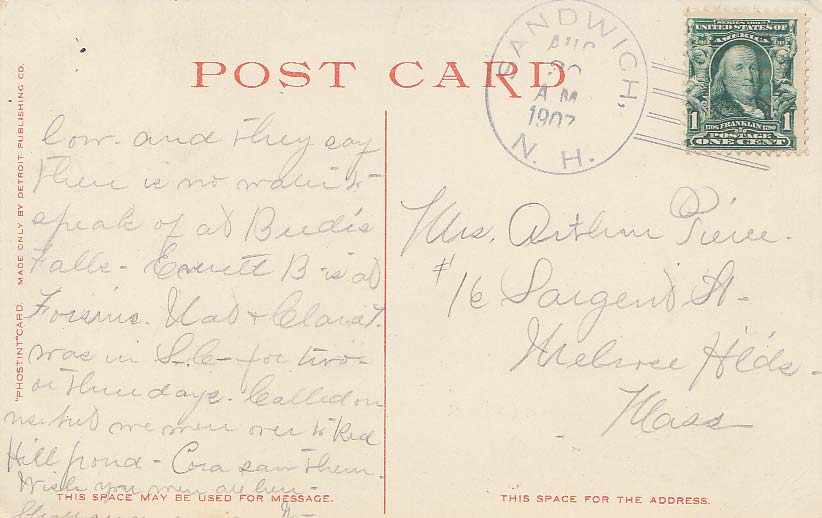 POST CARD
SANDWICH,
AUG
30
A M
1907
N. H.
SERIES 1902
UNITED STATES OF
AMERICA
1 1706 FRANKLIN 1790 1
POSTAGE
ONE CENT
"PHOSTINT" CARD MADE ONLY BY DETROIT PUBLISHING CO.
low. and they say
there is no water to
speak of at
Falls - Everett B is at
+ Clara T.
was in S.C. for two
or three days. Called on
us but we were over to Red
Hill pond - Cora saw them.
Wish you were all here -
Mrs. Arthur Pierce.
#16 Sargent St.
Melrose H'lds.
Mass
THIS SPACE MAY BE USED FOR MESSAGE.
THIS SPACE FOR THE ADDRESS.